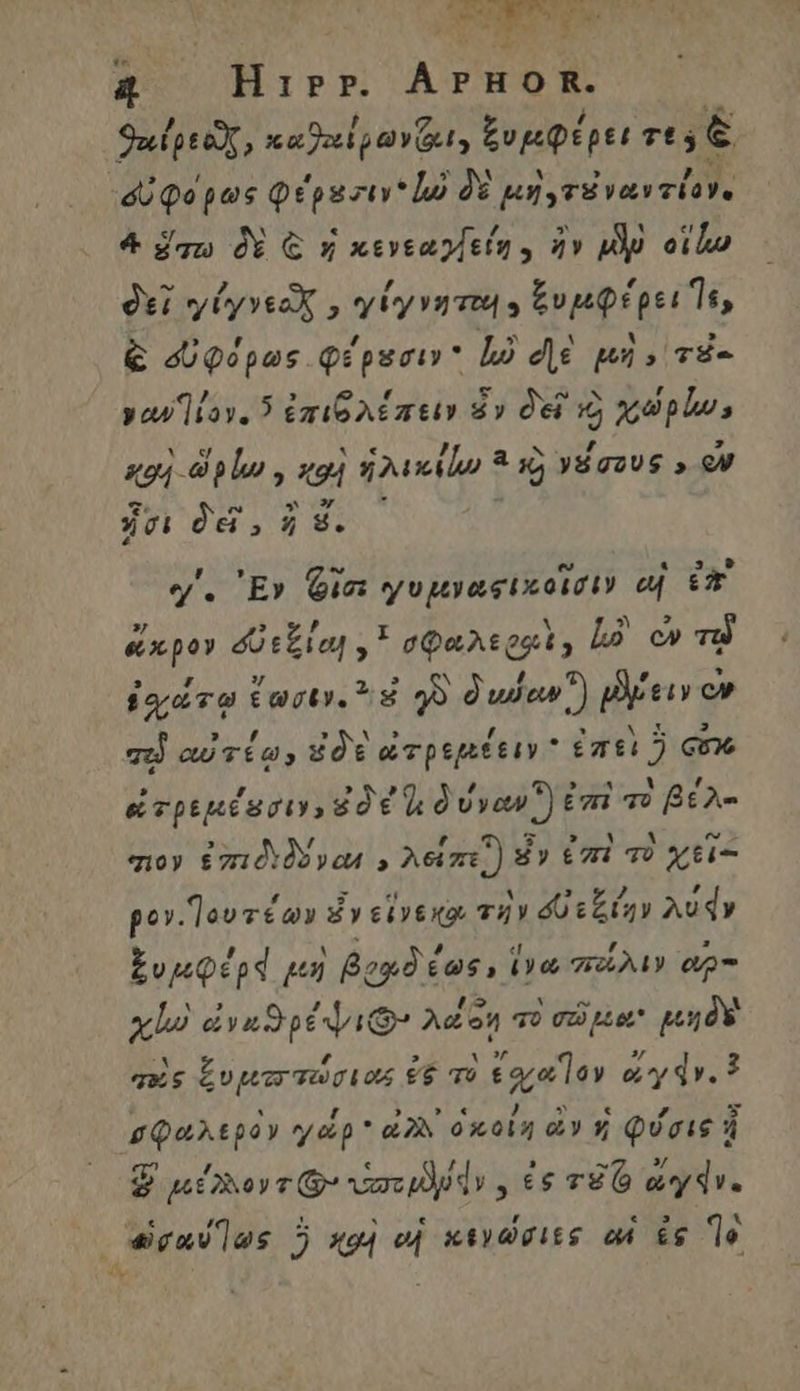 4 HIPP. APHOR.
θαίρεσθ, καθαίρωνται, ξυμφέρει τε, καὶ
εὐφόρως φέρουσιν· ἢν δὲ μὴ, τοὐναντίον.
4 οὕτω δὲ καὶ ἡ κενεαγγείη, ἢν μὲν οἵην
δεῖ γίγνεσθαι, γίγνηται, ξυμφέρει τε,
καὶ εὐφόρως φέρουσιν· ἢν δὲ μὴ, τοὐ-
ναντίον. 5 ἐπιβλέπειν οὖν δεῖ καὶ χώρην,
καὶ ὥρην, καὶ ἡλικίην a καὶ νούσους, ἐν
ᾗσι δεῖ, ἢ οὔ.
γ'. Ἐν τοῖσι γυμναστικοῖσιν αἱ ἐπ'
ἄκρον εὐεξίαι, 1 σφαλεραὶ, ἢν ἐν τῷ
ἐσχάτῳ ἔωσιν. 2 οὐ γὰρ δύνανται μένειν ἐν
τῷ αὐτέῳ, οὐδὲ ἀτρεμέειν· ἐπεὶ δὲ οὐκ
ἀτρεμέουσιν, οὐδέτι δύνανται ἐπὶ τὸ βέλ-
τιον ἐπιδιδόναι, λείπεται οὖν ἐπὶ τὸ χεῖ-
ρον. Τουτέων οὖν εἵνεκα τὴν εὐεξίην λύειν
ξυμφέρει μὴ βραδέως, ἵνα πάλιν ἀρ-
χὴν ἀναθρέψιος λάβῃ τὸ σῶμα· μηδὲ
τὰς ξυμπτώσιας ἐς τὸ ἔσχατον ἄγειν. 3
σφαλερὸν γάρ· ἀλλ' ὁκοίη ἂν ἡ φύσις ᾖ
τοῦ μέλλοντος ὑπομένειν, ἐς τοῦτο ἄγειν.
ὡσαύτως δὲ καὶ αἱ κενώσιες αἱ ἐς τὸ